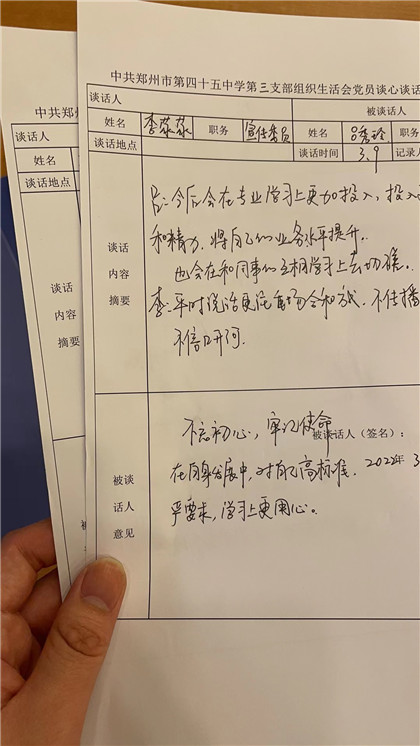 中共郑州市第四十五中学第三支部组织生活会党员谈心谈话
谈话人 被谈话人
姓名 职务 宣传委员 姓名 吕秀玲 职务
谈话地点 谈话时间 3.9 记录人
谈话
内容
摘要
吕:今后会在专业学习上更加投入,投入
和精力,将自己的业务水平提升.
也会在和同事的互相学习上去切磋.
李:平时说话更注重场合和方式.不传播
不信口开河.
被谈
话人
意见
不忘初心,牢记使命
被谈话人(签名):
在自身发展中,对自己高标准. 2022年3
严要求,学习上更用心。
中共郑州
谈话人
姓名
谈话地点
谈话
内容
摘要